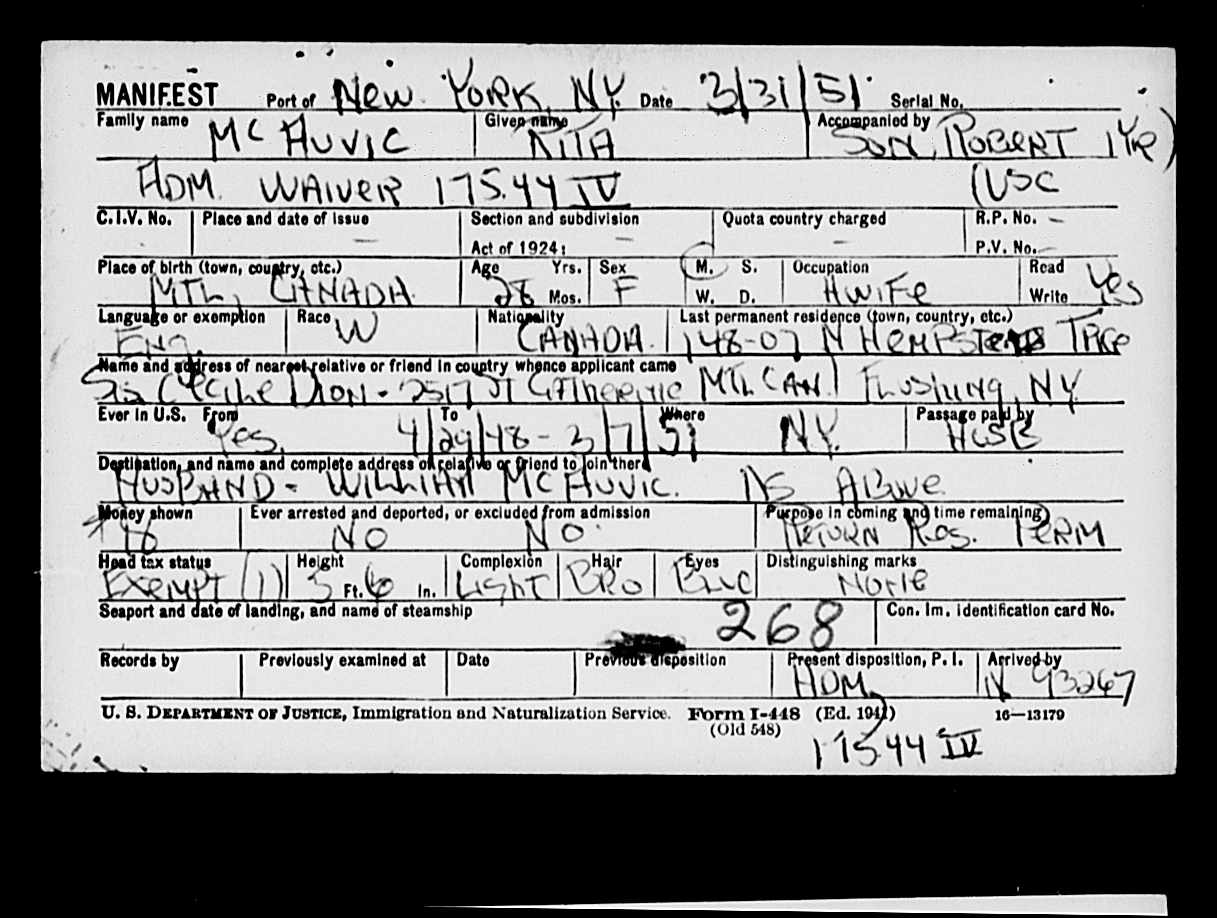 MANIFEST Port of New York, NY. Date 3/31/51 Serial No.
Family name Given name Accompanied by
McAuvic Rita Son, Robert 1 Yr)
Adm. Waiver 175.44 IV (USC
C.I.V. No. Place and date of issue Section and subdivision Quota country charged R.P. No. -
- Act of 1924: - - P.V. No. -
Place of birth (town, country, etc.) Age Yrs. Sex M. S. Occupation Read
MTL, CANADA 28 Mos. F W. D. HWIFE Write Yes
Language or exemption Race Nationality Last permanent residence (town, country, etc.)
Eng. W CANADA. 148-07 N Hempstead Tpke
Name and address of nearest relative or friend in country whence applicant came
Sis Cecile Dion - 2517 St Catherine MTL CAN. Flushing, NY
Ever in U.S. From To Where Passage paid by
Yes, 4/29/48 - 3/7/51 NY. HUSB
Destination, and name and complete address of relative or friend to join there
HUSBAND - WILLIAM McAUVIC. AS ABOVE
Money shown Ever arrested and deported, or excluded from admission Purpose in coming and time remaining
16 NO NO. RETURN Res. PERM
Head tax status Height Complexion Hair Eyes Distinguishing marks
EXEMPT (1) 5 Ft. 6 In. LIGHT BRO BLUE NONE
Seaport and date of landing, and name of steamship 268 Con. Im. identification card No.
Records by Previously examined at Date Previous disposition Present disposition, P. I. Arrived by
ADM, 93267
U. S. DEPARTMENT OF JUSTICE, Immigration and Naturalization Service. Form I-448 (Ed. 1941) 16—13179
(Old 548)
175.44 IV